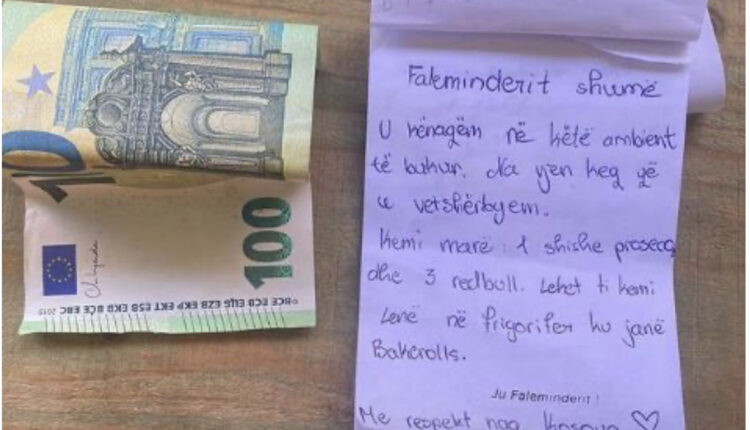 100
100
BCE ECB ЕЦБ EZB EKP EKT ESB EKB BĊE EBC
Faleminderit shumë
U kënaqëm në këtë ambient
të bukur. Na vjen keq që
u vetshërbyem.
Kemi marë : 1 shishe proseco
dhe 3 redbull. Lehet ti kemi
Lenë në frigorifer ku janë
Bakerolls.
Ju Faleminderit !
Me respekt nga Kosova